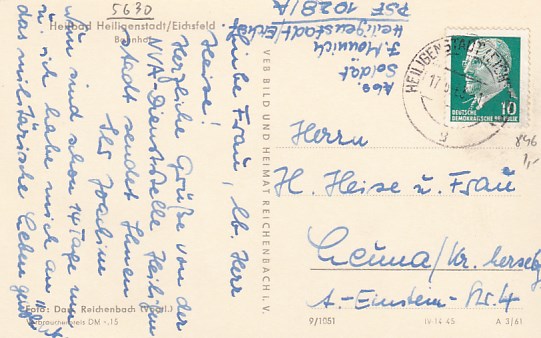 5630
Heilbad Heiligenstadt/Eichsfeld
Bahnhof
Liebe Frau, lb. Herr
Heise!
Herzliche Grüße von der
NVA-Dienststelle Heiligen
stadt sendet Ihnen
Ihr Joachim
Nun sind schon 14 Tage um
u. ich habe mich an
das militärische Leben
Foto: Darr, Reichenbach (Vogtl.)
Verbraucherpreis DM -,15
VEB BILD UND HEIMAT REICHENBACH I. V.
Abs.
Soldat
J.
Heiligenstadt/Eichsf.
PSF 1028/A
HEILIGENSTADT (EICHSF)
17
10
DEUTSCHE
DEMOKRATISCHE REPUBLIK
846
1,-
Herrn
H. Heise u. Frau
Leuna/Kr. Merseby
A.-Einstein-Str. 4
9/1051
IV-14-45
A 3/61